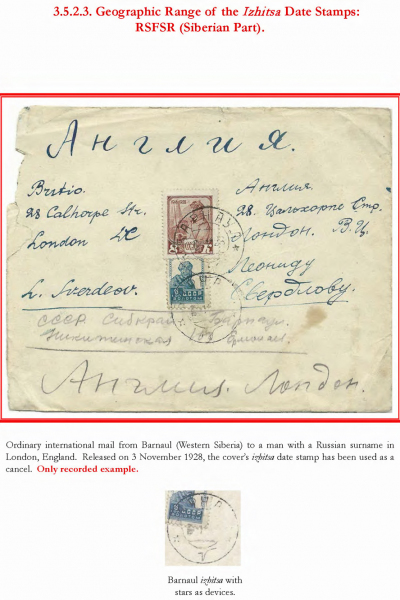 3.5.2.3. Geographic Range of the Izhitsa Date Stamps:
RSFSR (Siberian Part).
Англия.
28 Calthorpe Str.
London
L. Sverdlov.
Англия.
28.
Лондон. В.Ц.
Леониду
Свердлову.
СССР Сибкрай Барнаул.
Никитинская
Англия. Лондон.
Ordinary international mail from Barnaul (Western Siberia) to a man with a Russian surname in
London, England. Released on 3 November 1928, the cover's izhitsa date stamp has been used as a
cancel. Only recorded example.
Barnaul izhitsa with
stars as devices.